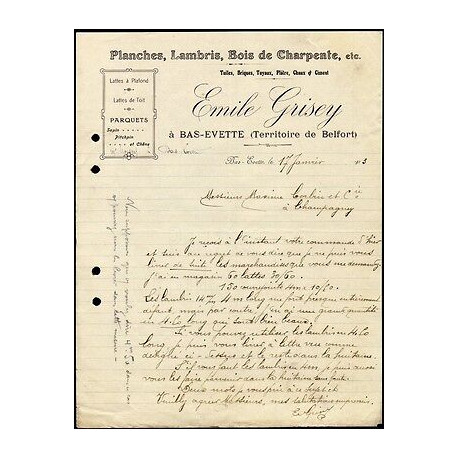 Planches, Lambris, Bois de Charpente, etc.
Tuiles, Briques, Tuyaux, Plâtre, Chaux & Ciment
Lattes à Plafond
Lattes de Toit
PARQUETS
Sapin
Pitchpin
et Chêne
Emile Grisey
à BAS-EVETTE (Territoire de Belfort)
Bas-Evette, le 17 janvier 3
Messieurs Maxime Corbin et Cie
à Champagney
Je reçois à l'instant votre commande d'hier
et suis au regret de vous dire que je ne puis vous
livrer de suite les marchandises que vous me demandez
j'ai en magasin 60 lattes 30/60
130 4m à 10/60.
Les lambris 14 4m long me font presque entièrement
défaut, mais par contre j'en ai une grande quantité
en 4.20 long qui sont bien beaux.
Si vous pouvez utiliser les lambris en 4.20
long, je puis vous livrer à lettre vue comme
ci-dessus et le reste dans la huitaine.
S'il vous faut les lambris en 4m, je puis aussi
vous les faire parvenir dans la huitaine sans faute.
Deux mots, je vous prie à ce sujet et
Veuillez agréer Messieurs, mes salutations empressées.
E. Grisey